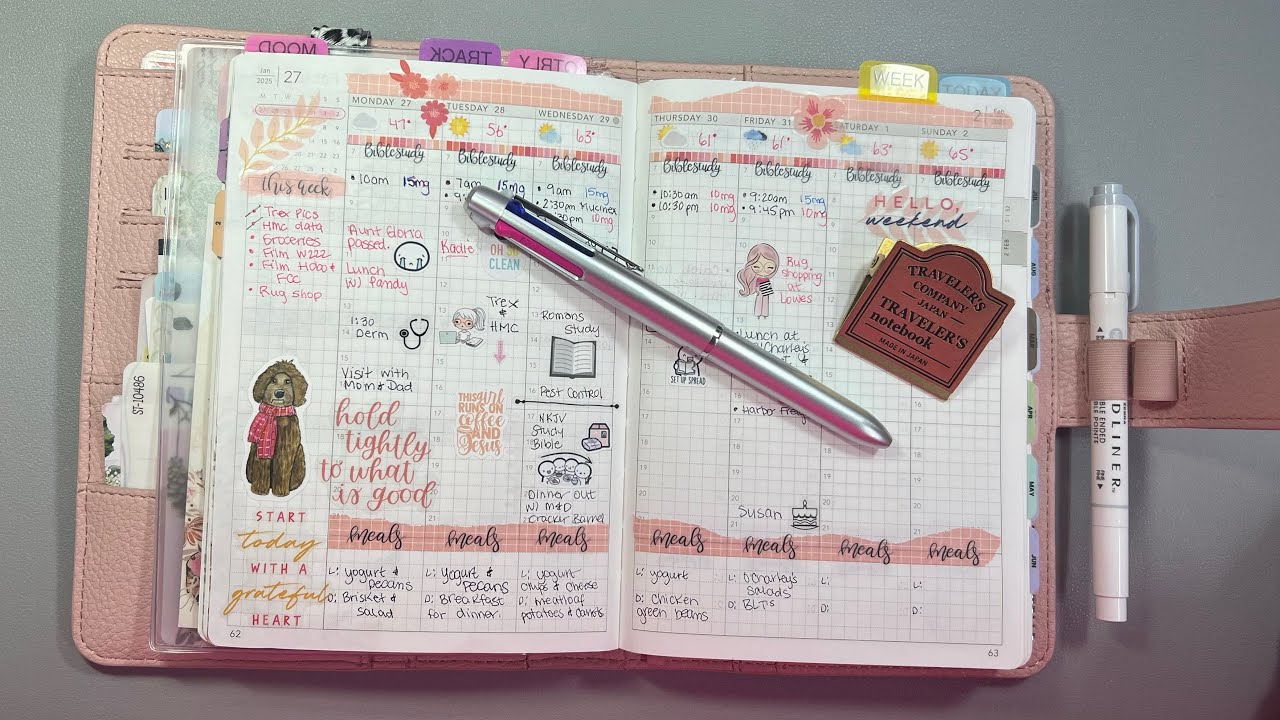 MOOD
TRACK
QTRLY
WEEK
TODAY
Jan
2025
27
M T W T F S S
MONDAY 27
TUESDAY 28
WEDNESDAY 29
47°
56°
63°
Bible study
Bible study
Bible study
this week
Trex Pics
HMC data
Groceries
Film W222
Film Hobo &
FCC
Rug Shop
10am 15mg
7am 15mg
9am 15mg
2:30pm Mucinex
10mg
Aunt Gloria
passed.
Lunch
w/ Pandy
1:30
Derm
Visit with
Mom & Dad
hold
tightly
to what
is good
Kadie
OH SO
CLEAN
Trex
&
HMC
THIS girl
RUNS ON
Coffee
AND
Jesus
Romans
Study
Pest Control
NKJV
Study
Bible
Dinner Out
w/ M&D
Cracker Barrel
START
today
WITH A
grateful
HEART
meals
meals
meals
L: Yogurt &
pecans
D: Brisket &
salad
L: Yogurt &
pecans
D: Breakfast
for dinner.
L: yogurt
chips & cheese
D: meatloaf
potatoes & carrots
62
THURSDAY 30
FRIDAY 31
SATURDAY 1
SUNDAY 2
2 Feb
61°
61°
63°
65°
Bible study
Bible study
Bible study
Bible study
10:30am 10mg
10:30pm 10mg
9:20am 15mg
9:45pm 10mg
HELLO,
weekend
Rug
shopping
at
Lowes
SET UP SPREAD
Lunch at
O'Charley's
Harbor Freig
Susan
meals
meals
meals
meals
L: yogurt
D: Chicken
green beans
L: O'Charley's
salads
D: BLTs
L:
D:
L:
D:
63
TRAVELER'S
COMPANY
JAPAN
TRAVELER'S
notebook
MADE IN JAPAN
ST-10486
AUG
APR
MAY
JUN
ZEBRA
DLINER
BLE ENDED
BLE POINTE